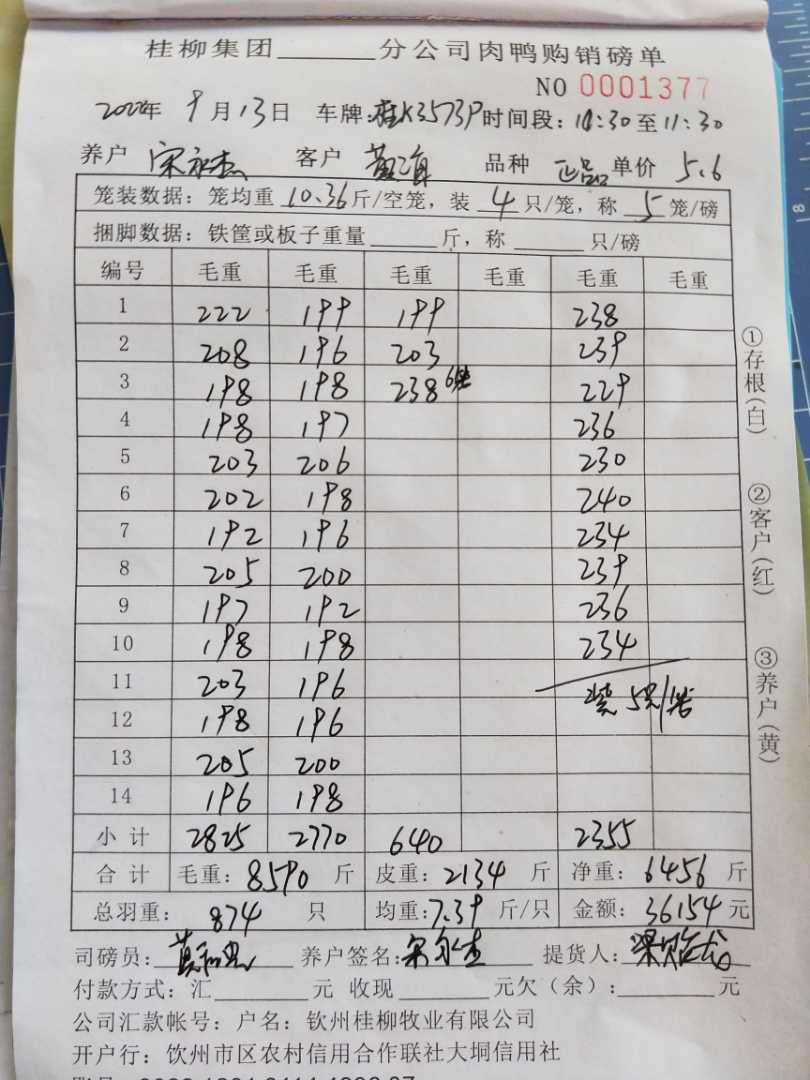 桂柳集团______分公司肉鸭购销磅单
NO 0001377
2020年 9月13日 车牌:桂K3573P 时间段:10:30至11:30
养户 宋永杰 客户 黄海 品种 正品 单价 5.6
笼装数据:笼均重 10.36 斤/空笼,装 4 只/笼,称 5 笼/磅
捆脚数据:铁筐或板子重量______斤,称______只/磅
编号 毛重 毛重 毛重 毛重 毛重 毛重
1 222 199 199 238
2 208 196 203 239
3 198 198 238 6笼 229
4 198 197 236
5 203 206 230
6 202 198 240
7 192 196 234
8 205 200 239
9 197 192 236
10 198 198 234
11 203 196 装5只/笼
12 198 196
13 205 200
14 196 198
小计 2825 2770 640 2355
合计 毛重:8590 斤 皮重:2134 斤 净重:6456 斤
总羽重: 874 只 均重:7.39 斤/只 金额:36154 元
司磅员: 养户签名:宋永杰 提货人:
付款方式:汇______元 收现______元欠(余):______元
公司汇款帐号:户名:钦州桂柳牧业有限公司
开户行:饮州市区农村信用合作联社大垌信用社
①存根(白)
②客户(红)
③养户(黄)
8